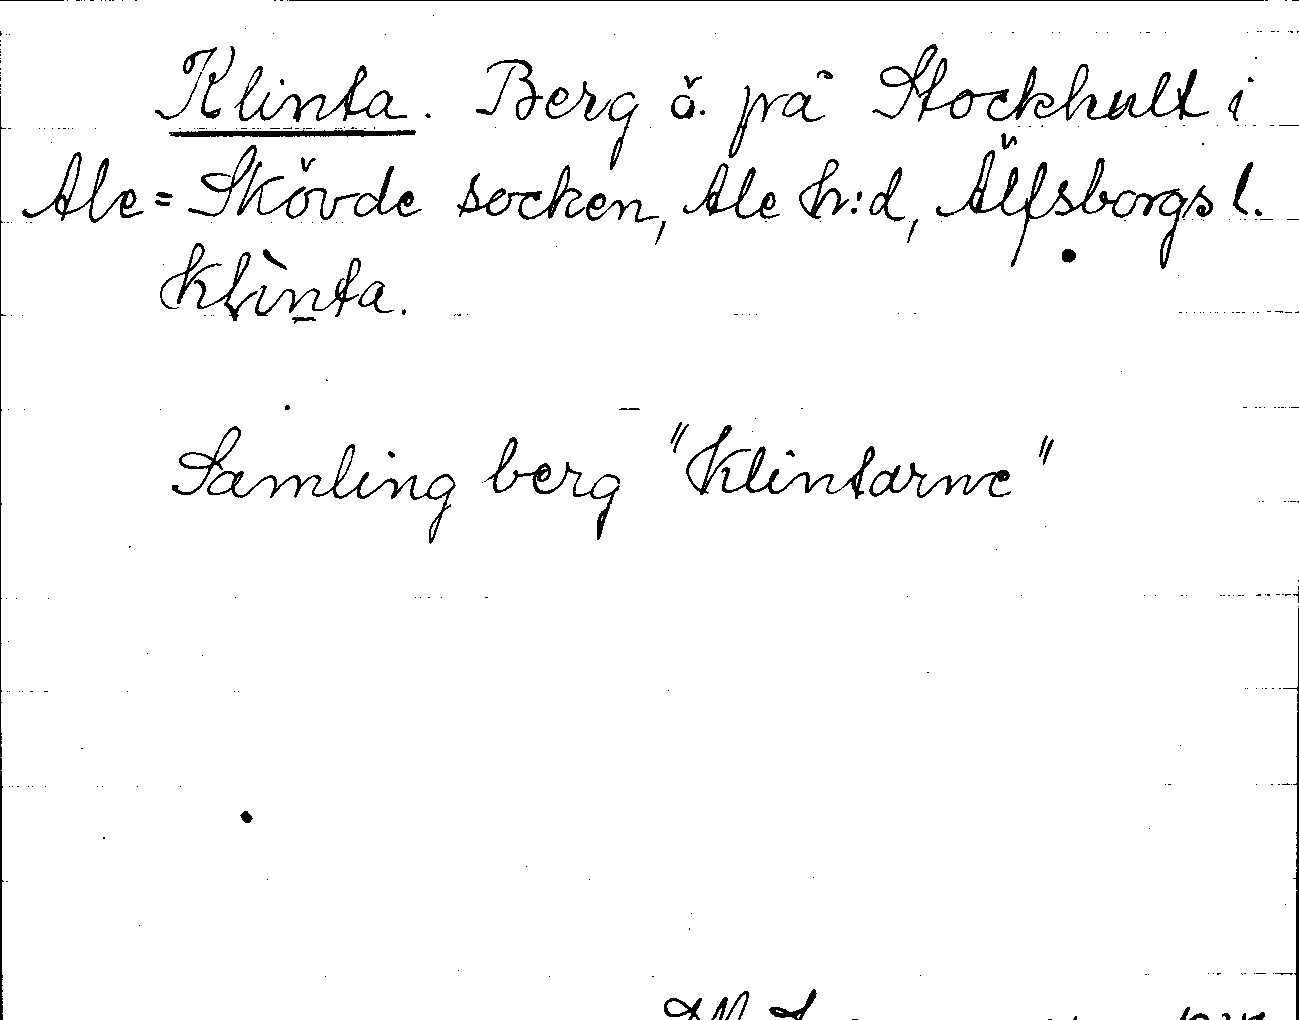 Klinta. Berg ö. på Stockhult i
Ale=Skövde socken, Ale h:d, Älfsborgs l.
Klìnta.
Samling berg "Klintarne"